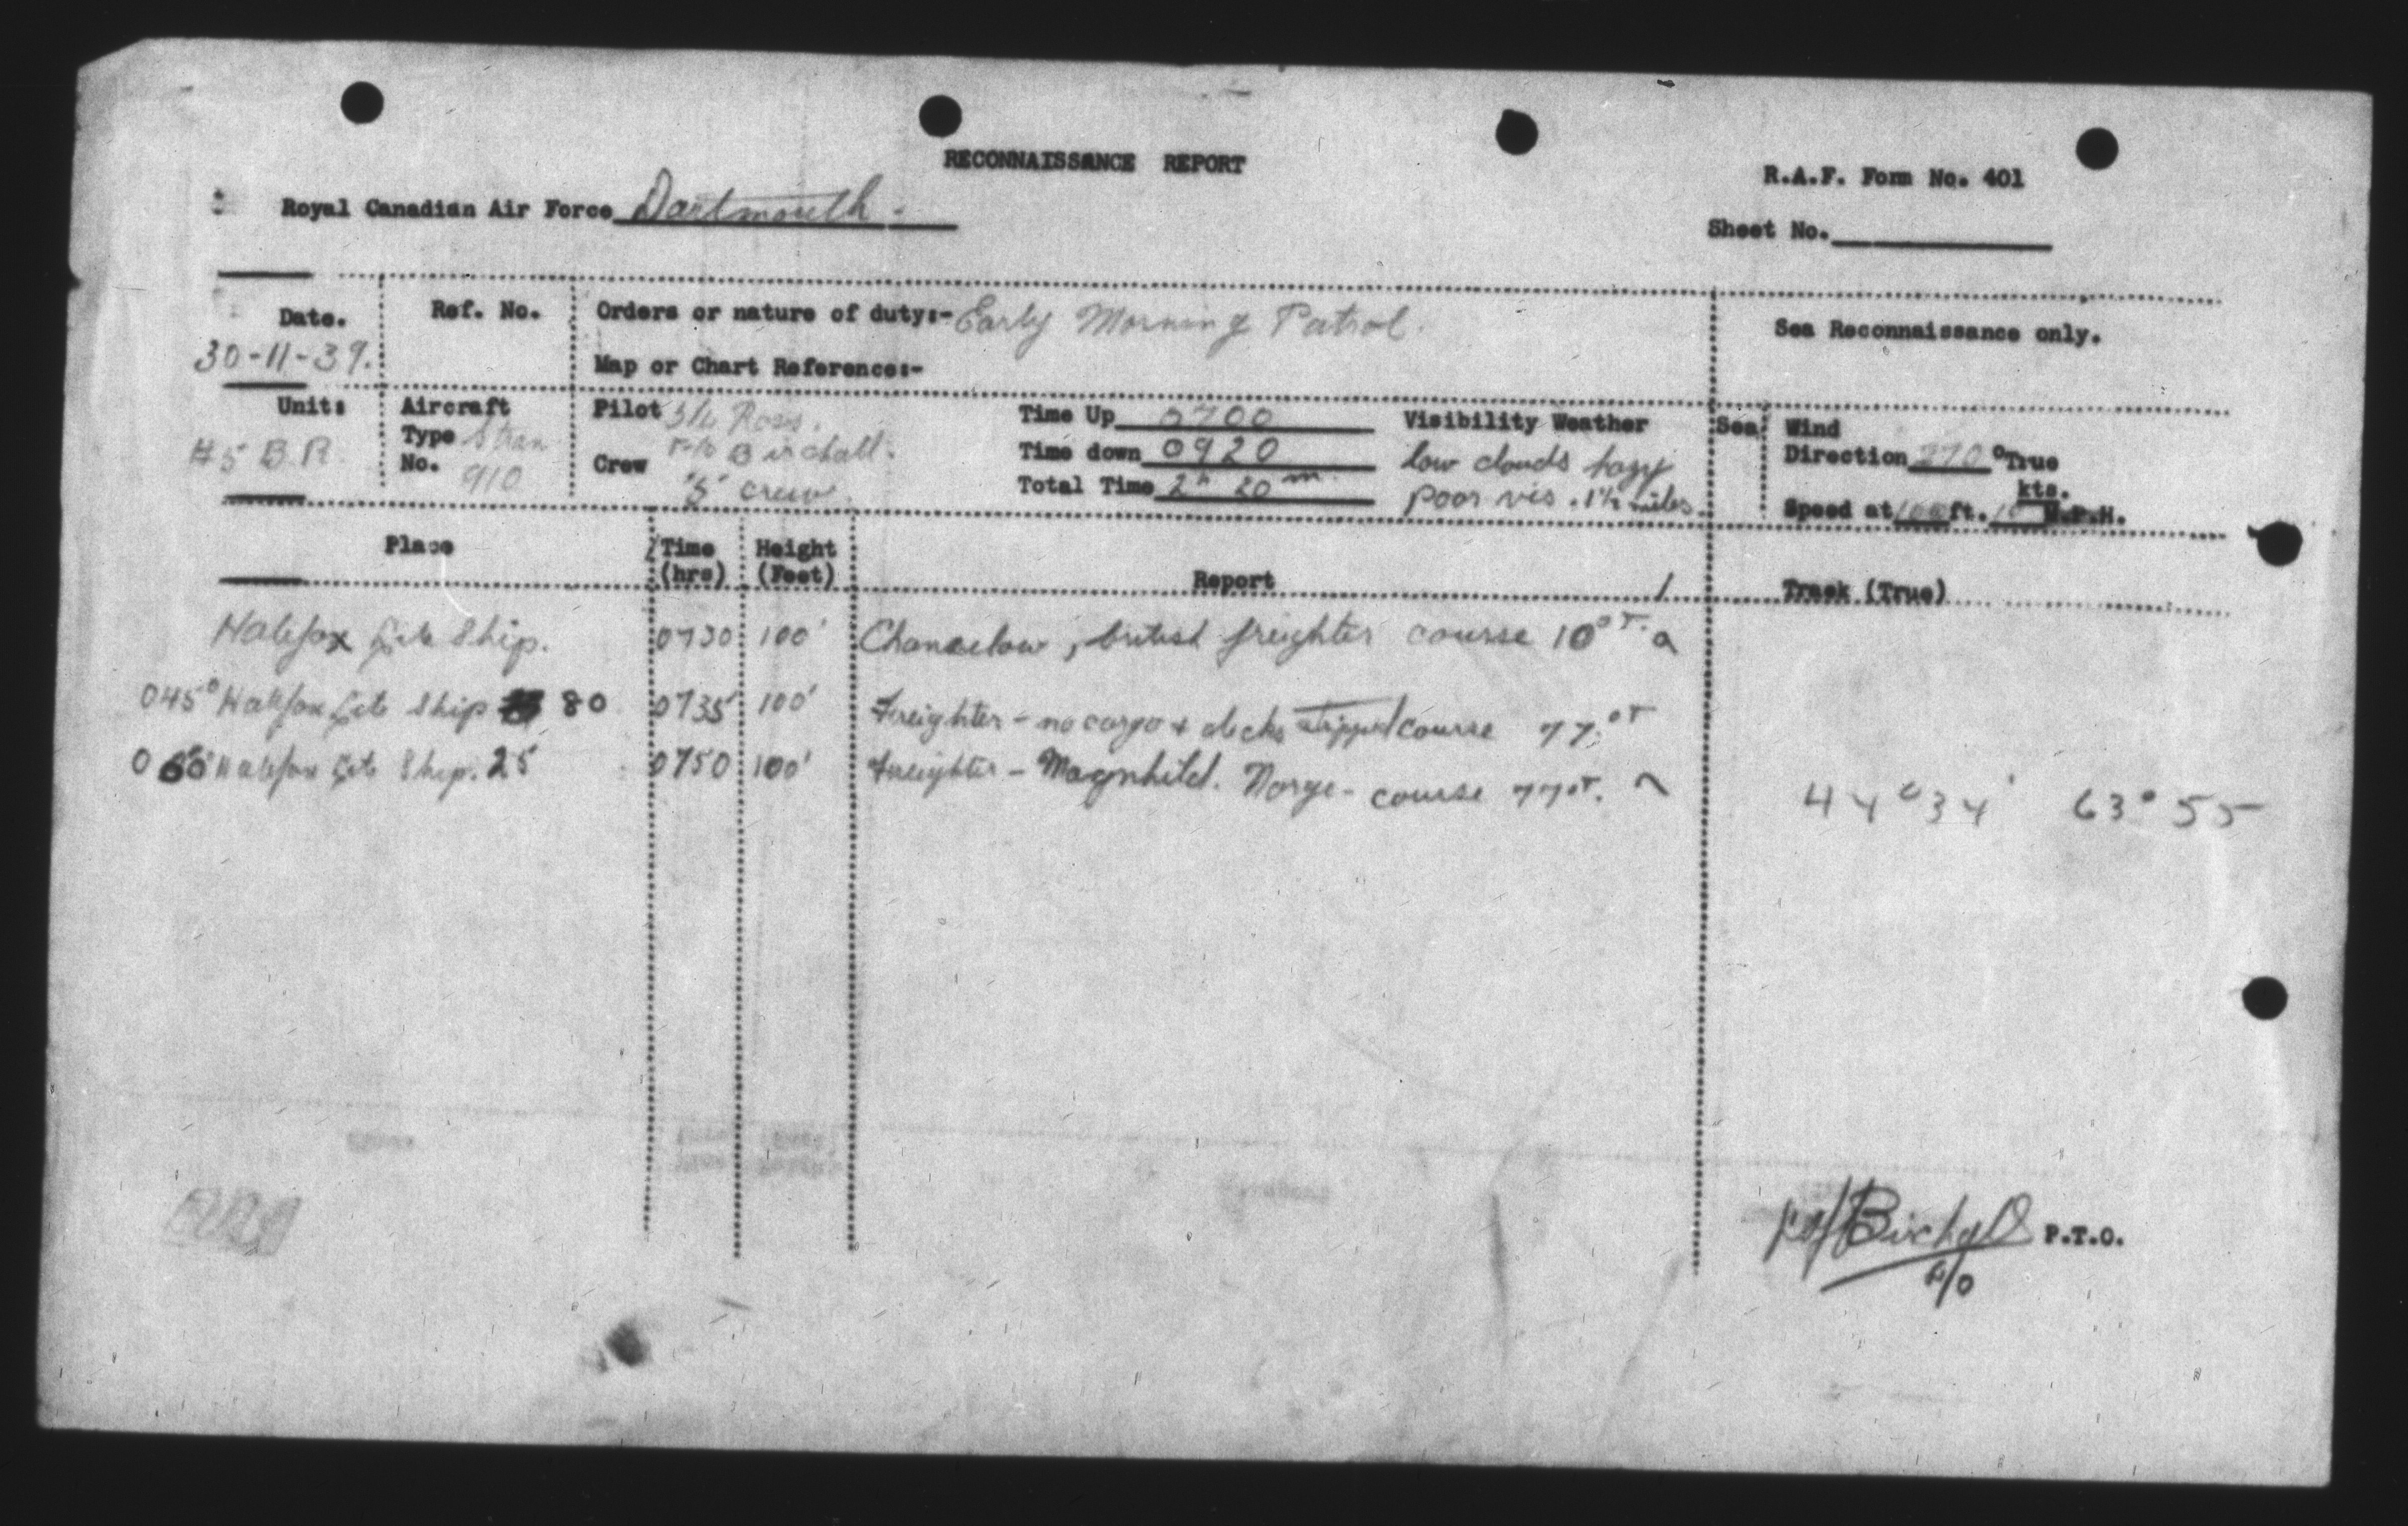 RECONNAISSANCE REPORT
R.A.F. Form No. 401
Royal Canadian Air Force Dartmouth -
Sheet No.
Date.
30-11-39.
Ref. No.
Orders or nature of duty:- Early Morning Patrol.
Map or Chart Reference:-
Sea Reconnaissance only.
Unit:
#5 B.R.
Aircraft
Type Stran
No. 910
Pilot S/L Ross.
F/O Birchall.
Crew "S" crew.
Time Up 0700
Time down 0920
Total Time 2h 20m
Visibility Weather
low clouds hazy
poor vis. 1½ miles.
Sea
Wind
Direction 270 °True
kts.
Speed at 100 ft. 10 M.P.H.
Place
Time
(hrs)
Height
(Feet)
Report
Track (True)
Halifax Lite Ship. 0730 100' british freighter course 10°T.
045° Halifax Lite Ship 80 0735 100' Freighter - no cargo + decks stripped course 77°T
Halifax Lite Ship. 25 0750 100' Freighter - Magnhild. Norge - course 77°T.
44°34' 63°55
Birchall P.T.O.
F/O